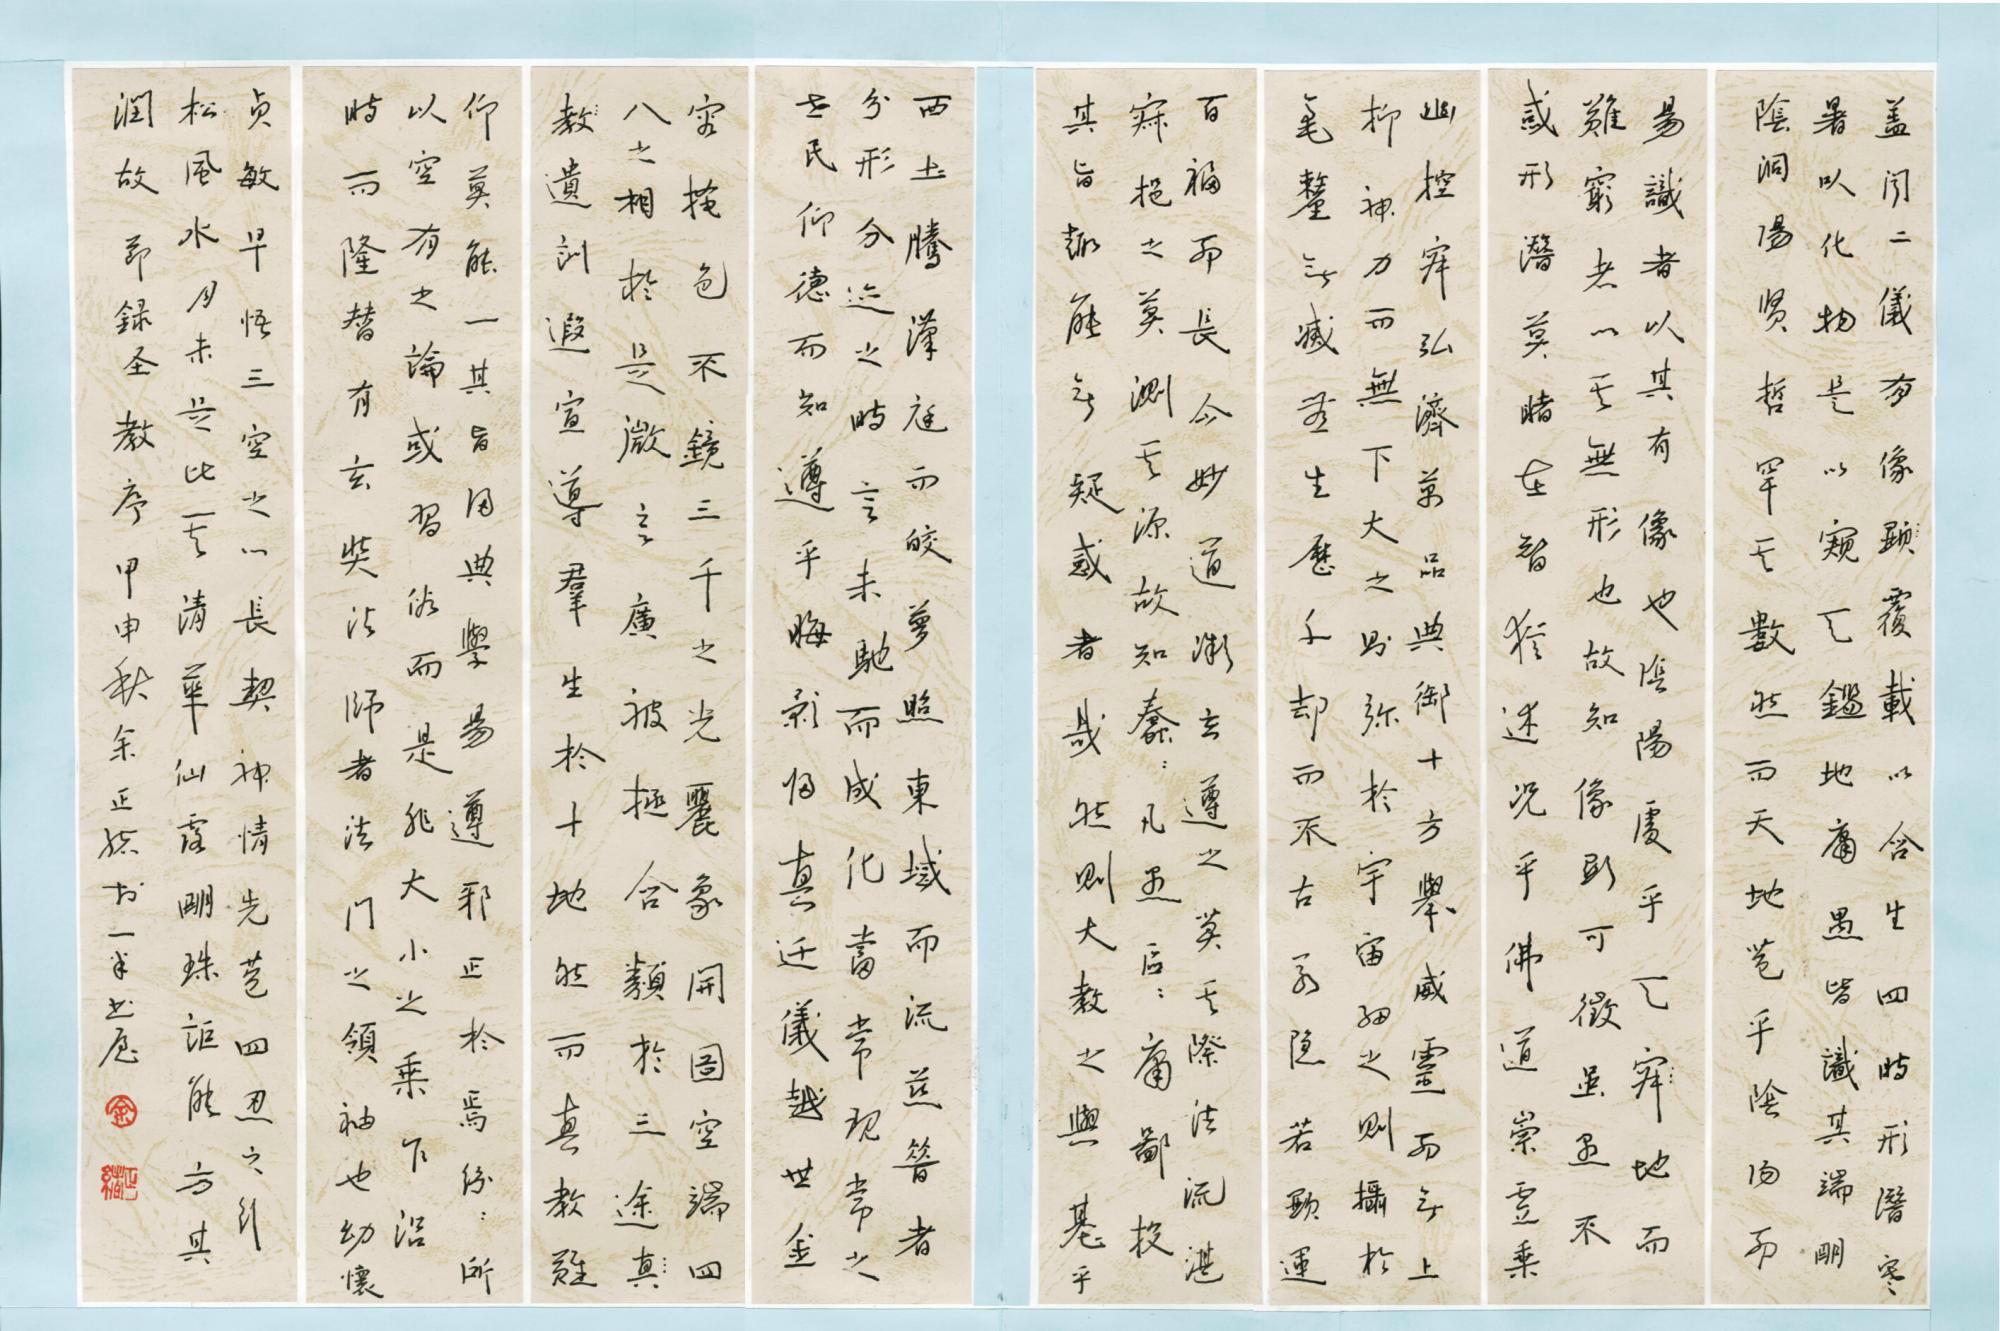 盖闻二儀有像顯覆載以含生四時形潛寒
暑以化物是以窺天鑑地庸愚皆識其端明
陰洞陽贤哲罕其數然而天地苞乎陰陽而
易識者以其有像也陰陽處乎天地而
難窮者以其無形也故知像顯可徵虽愚不
惑形潛莫睹在智猶迷况乎佛道崇虚乘
幽控寂弘濟萬品典御十方舉威靈而無上
抑神力而無下大之則弥於宇宙細之則攝於
毫釐無滅無生歷千劫而不古若隐若顯運
百福而長今妙道凝玄遵之莫其際法流湛
寂挹之莫測其源故知蠢:凡愚区:庸鄙投
其旨趣能無疑惑者哉然則大教之興基乎
西土騰漢庭而皎夢照東域而流慈昔者
分形分迹之時言未馳而成化當常現常之
世民仰德而知遵乎晦影归真迁儀越世金
容掩色不鏡三千之光麗象開圖空端四
八之相於是微言廣被拯含類於三途真
教遺訓遐宣導羣生於十地然而真教難
仰莫能一其旨归典學易遵邪正於焉紛:所
以空有之論或習俗而是非大小之乘乍沿
時而隆替有玄奘法師者法門之領袖也幼懷
貞敏早悟三空之心長契神情先苞四忍之行
松風水月未足比其清華仙露明珠詎能方其
潤故节録圣教序甲申秋余正书一半书屋